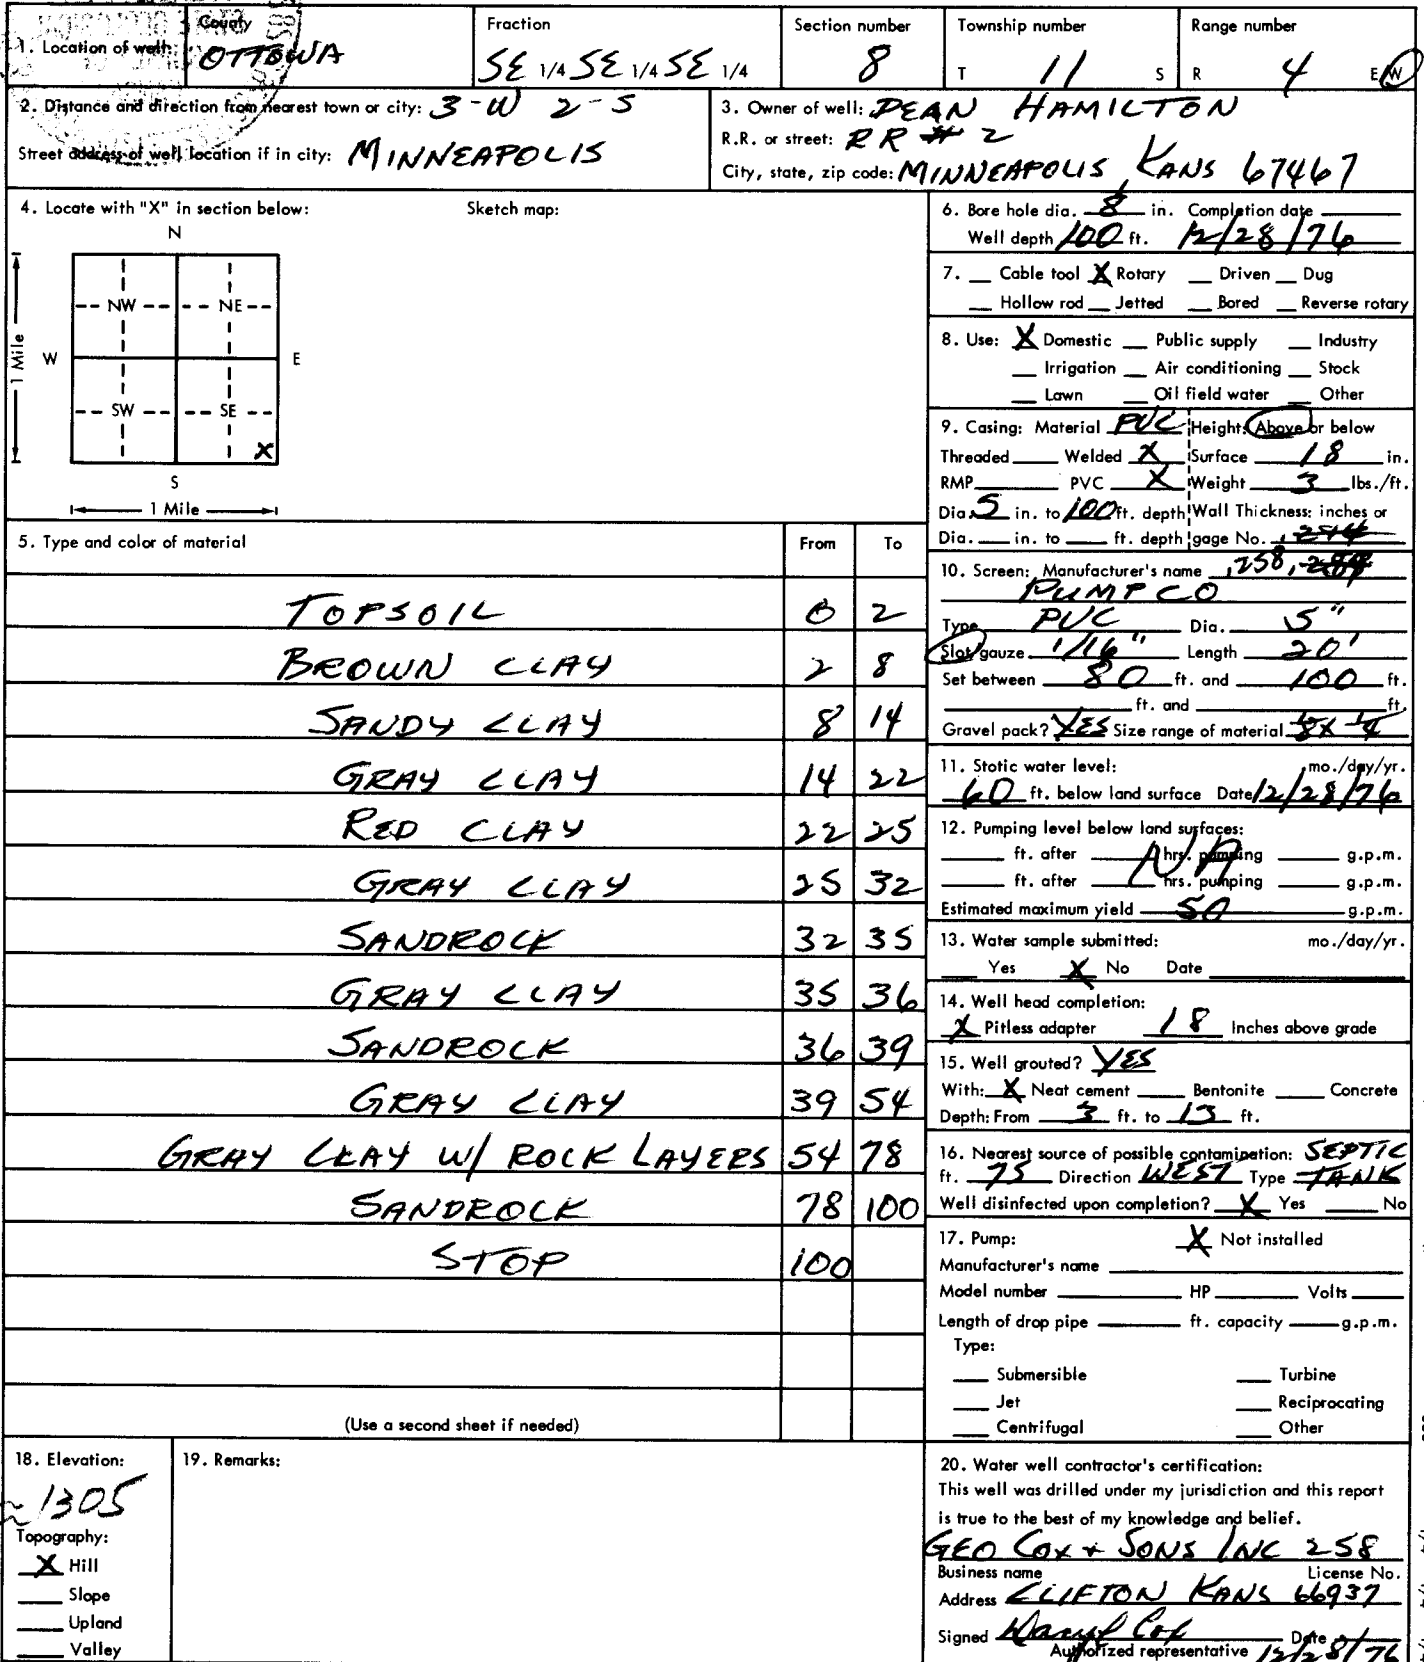 County Fraction Section number Township number Range number
1. Location of well: OTTOWA SE 1/4 SE 1/4 SE 1/4 8 T 11 S R 4 E W
2. Distance and direction from nearest town or city: 3-W 2-S
Street address of well location if in city: MINNEAPOLIS
3. Owner of well: DEAN HAMILTON
R.R. or street: RR # 2
City, state, zip code: MINNEAPOLIS, KANS 67467
4. Locate with "X" in section below: Sketch map:
N
NW NE
W E
SW SE
X
S
1 Mile
1 Mile
5. Type and color of material From To
TOPSOIL 0 2
BROWN CLAY 2 8
SANDY CLAY 8 14
GRAY CLAY 14 22
RED CLAY 22 25
GRAY CLAY 25 32
SANDROCK 32 35
GRAY CLAY 35 36
SANDROCK 36 39
GRAY CLAY 39 54
GRAY CLAY W/ ROCK LAYERS 54 78
SANDROCK 78 100
STOP 100
(Use a second sheet if needed)
6. Bore hole dia. 8 in. Completion date
Well depth 100 ft. 12/28/76
7. __ Cable tool X Rotary __ Driven __ Dug
__ Hollow rod __ Jetted __ Bored __ Reverse rotary
8. Use: X Domestic __ Public supply __ Industry
__ Irrigation __ Air conditioning __ Stock
__ Lawn __ Oil field water __ Other
9. Casing: Material PVC Height: Above or below
Threaded ___ Welded X Surface 18 in.
RMP ___ PVC X Weight 3 lbs./ft.
Dia. 5 in. to 100 ft. depth Wall Thickness: inches or
Dia. __ in. to __ ft. depth gage No.
10. Screen: Manufacturer's name .258,
PUMP CO
Type PVC Dia. 5"
Slot/gauze 1/16" Length 20'
Set between 80 ft. and 100 ft.
___ ft. and ___ ft.
Gravel pack? YES Size range of material 1/8 x 1/4
11. Stotic water level: mo./day/yr.
60 ft. below land surface Date 12/28/76
12. Pumping level below land surfaces:
___ ft. after ___ hrs. pumping ___ g.p.m.
NA
___ ft. after ___ hrs. pumping ___ g.p.m.
Estimated maximum yield 50 g.p.m.
13. Water sample submitted: mo./day/yr.
__ Yes X No Date
14. Well head completion:
X Pitless adapter 18 Inches above grade
15. Well grouted? YES
With: X Neat cement ___ Bentonite ___ Concrete
Depth: From 3 ft. to 13 ft.
16. Nearest source of possible contamination: SEPTIC
ft. 75 Direction WEST Type TANK
Well disinfected upon completion? X Yes ___ No
17. Pump: X Not installed
Manufacturer's name
Model number ___ HP ___ Volts
Length of drop pipe ___ ft. capacity ___ g.p.m.
Type:
__ Submersible __ Turbine
__ Jet __ Reciprocating
__ Centrifugal __ Other
18. Elevation:
~1305
Topography:
X Hill
__ Slope
__ Upland
__ Valley
19. Remarks:
20. Water well contractor's certification:
This well was drilled under my jurisdiction and this report
is true to the best of my knowledge and belief.
GEO COX + SONS INC 258
Business name License No.
Address CLIFTON KANS 66937
Signed Daryl Cox Date
Authorized representative 12/28/76